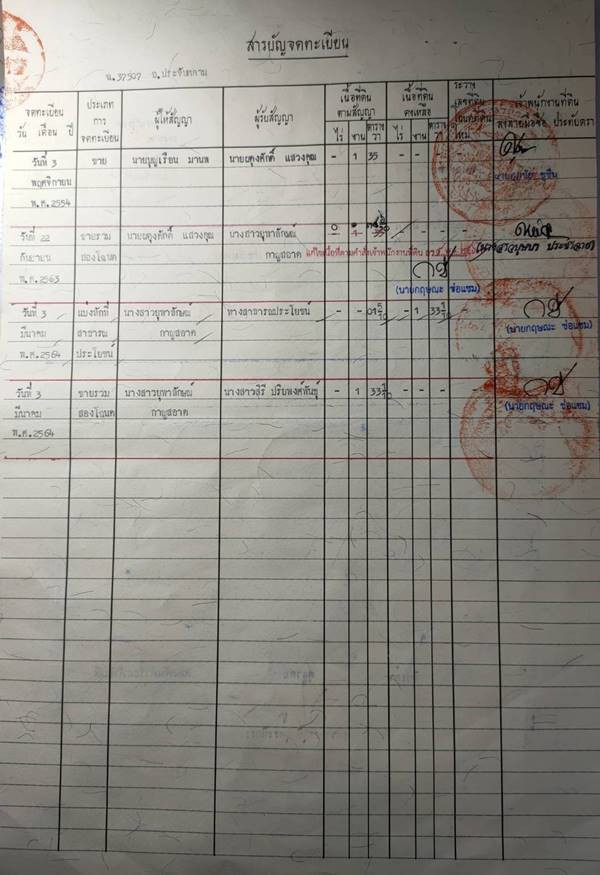 สารบัญจดทะเบียน
น.37507 อ.ประจันตคาม
จดทะเบียน
วัน เดือน ปี
ประเภท
การ
จดทะเบียน
ผู้ให้สัญญา
ผู้รับสัญญา
เนื้อที่ดิน
ตามสัญญา
ไร่ งาน ตารางวา
เนื้อที่ดิน
คงเหลือ
ไร่ งาน ตารางวา
ระวาง
เลขที่ดิน
โฉนดที่ดิน
ใหม่
เจ้าพนักงานที่ดิน
ลงลายมือชื่อ ประทับตรา
วันที่ 3 ขาย นายบุญเรือน มานพ นายผดุงศักดิ์ แสวงคุณ - 1 35 - - - -
พฤศจิกายน
พ.ศ.2554
วันที่ 22 ขายรวม นายผดุงศักดิ์ แสวงคุณ นางสาวยุพาลักษณ์
กันยายน สองโฉนด กาญสอาด แก้ไขเนื้อที่ตามคำสั่งเจ้าพนักงานที่ดิน
พ.ศ.2563 (นายกฤษณะ ช่อแซม)
วันที่ 3 แบ่งหักที่ นางสาวยุพาลักษณ์ ทางสาธารณประโยชน์ - - 01 5/10 - 1 33
มีนาคม สาธารณ กาญสอาด (นายกฤษณะ ช่อแซม)
พ.ศ.2564 ประโยชน์
วันที่ 3 ขายรวม นางสาวยุพาลักษณ์ นางสาวสุรี ปริยพงศ์พันธุ์ - 1 33 - - - -
มีนาคม สองโฉนด กาญสอาด (นายกฤษณะ ช่อแซม)
พ.ศ.2564